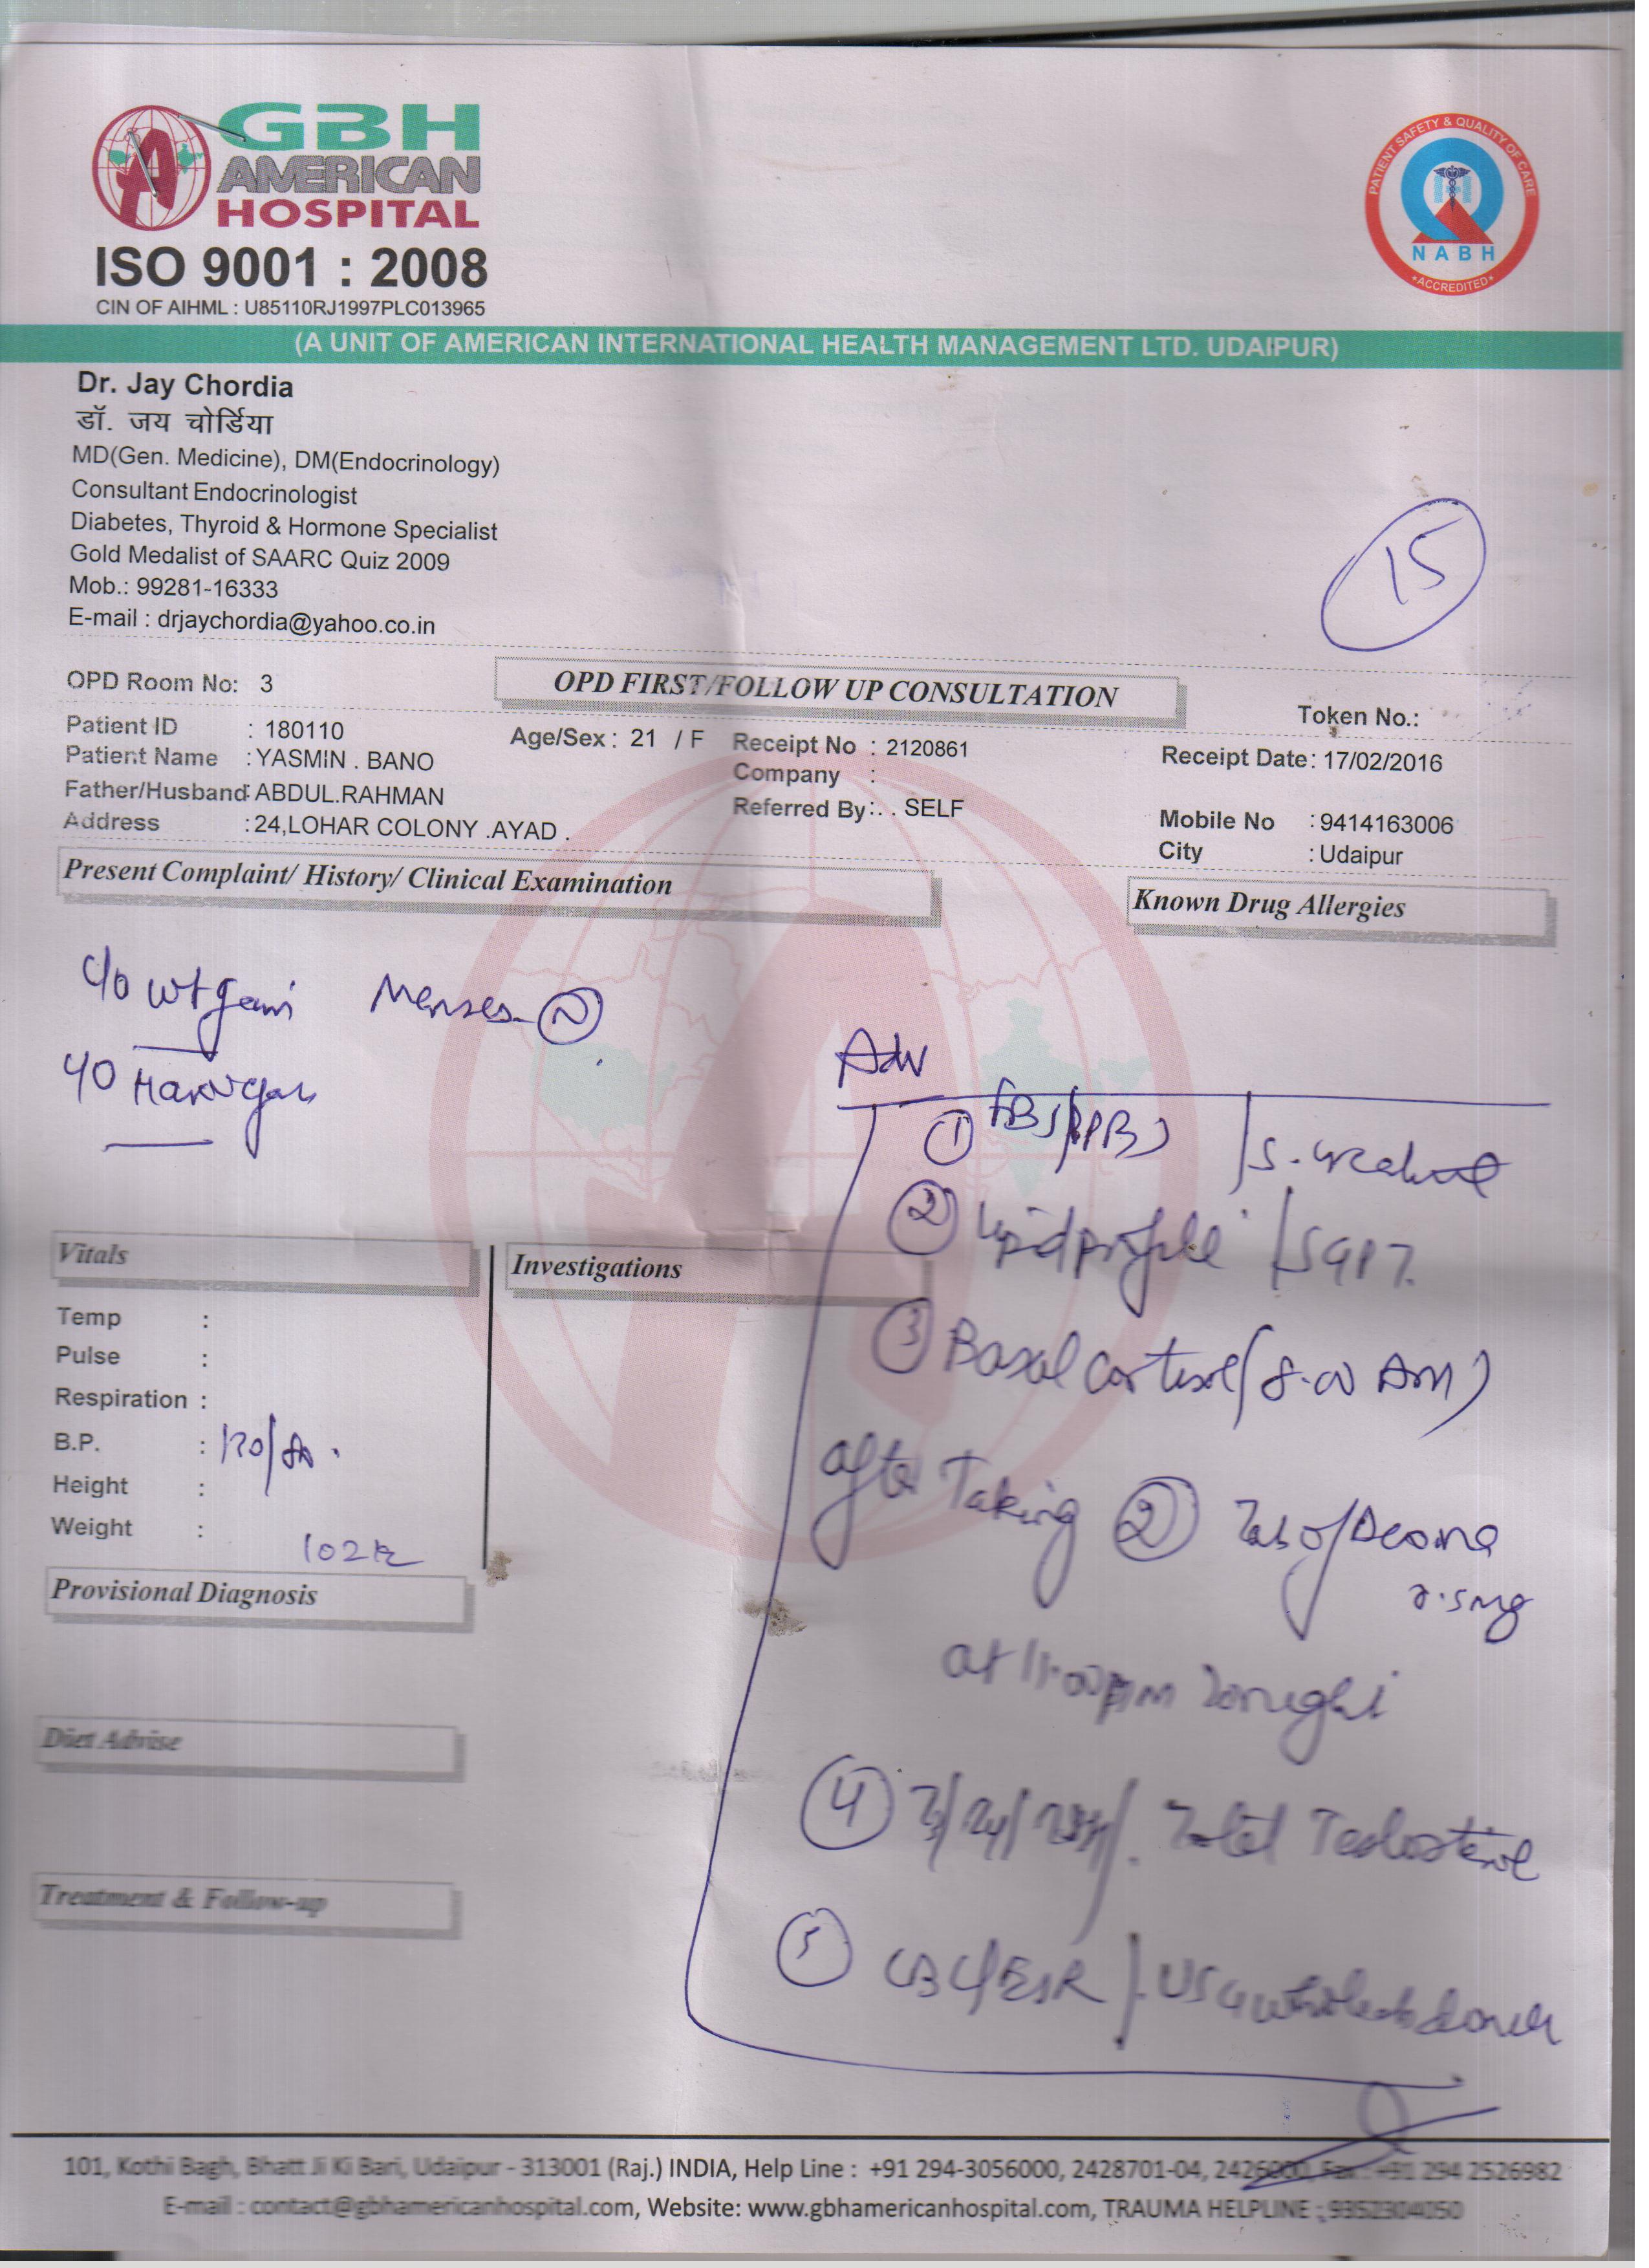 GBH
AMERICAN
HOSPITAL
ISO 9001 : 2008
CIN OF AIHML : U85110RJ1997PLC013965
PATIENT SAFETY & QUALITY OF CARE
NABH
ACCREDITED
(A UNIT OF AMERICAN INTERNATIONAL HEALTH MANAGEMENT LTD. UDAIPUR)
Dr. Jay Chordia
डॉ. जय चोर्डिया
MD(Gen. Medicine), DM(Endocrinology)
Consultant Endocrinologist
Diabetes, Thyroid & Hormone Specialist
Gold Medalist of SAARC Quiz 2009
Mob.: 99281-16333
E-mail : drjaychordia@yahoo.co.in
15
OPD Room No: 3
OPD FIRST/FOLLOW UP CONSULTATION
Token No.:
Patient ID : 180110
Age/Sex : 21 / F
Receipt No : 2120861
Receipt Date : 17/02/2016
Patient Name : YASMIN . BANO
Company :
Father/Husband : ABDUL.RAHMAN
Referred By : . . SELF
Mobile No : 9414163006
Address : 24,LOHAR COLONY .AYAD .
City : Udaipur
Present Complaint/ History/ Clinical Examination
Known Drug Allergies
c/o wt gain Menses N
c/o
Adv
1 FBS/PPBS
2 Lipid profile / SGPT
3 Basal Cortisol (8.00 AM)
after Taking 2 Tab of
at 11:00 pm Tonight
4 T3/T4/TSH/. Total Testosterone
5 CBC/ESR / USG whole abdomen
Vitals
Investigations
Temp :
Pulse :
Respiration :
B.P. :
Height :
Weight :
102
Provisional Diagnosis
Diet Advise
Treatment & Follow-up
101, Kothi Bagh, Bhatt Ji Ki Bari, Udaipur - 313001 (Raj.) INDIA, Help Line : +91 294-3056000, 2428701-04, 2426000, Fax : +91 294 2526982
E-mail : contact@gbhamericanhospital.com, Website: www.gbhamericanhospital.com, TRAUMA HELPLINE : 9352304050